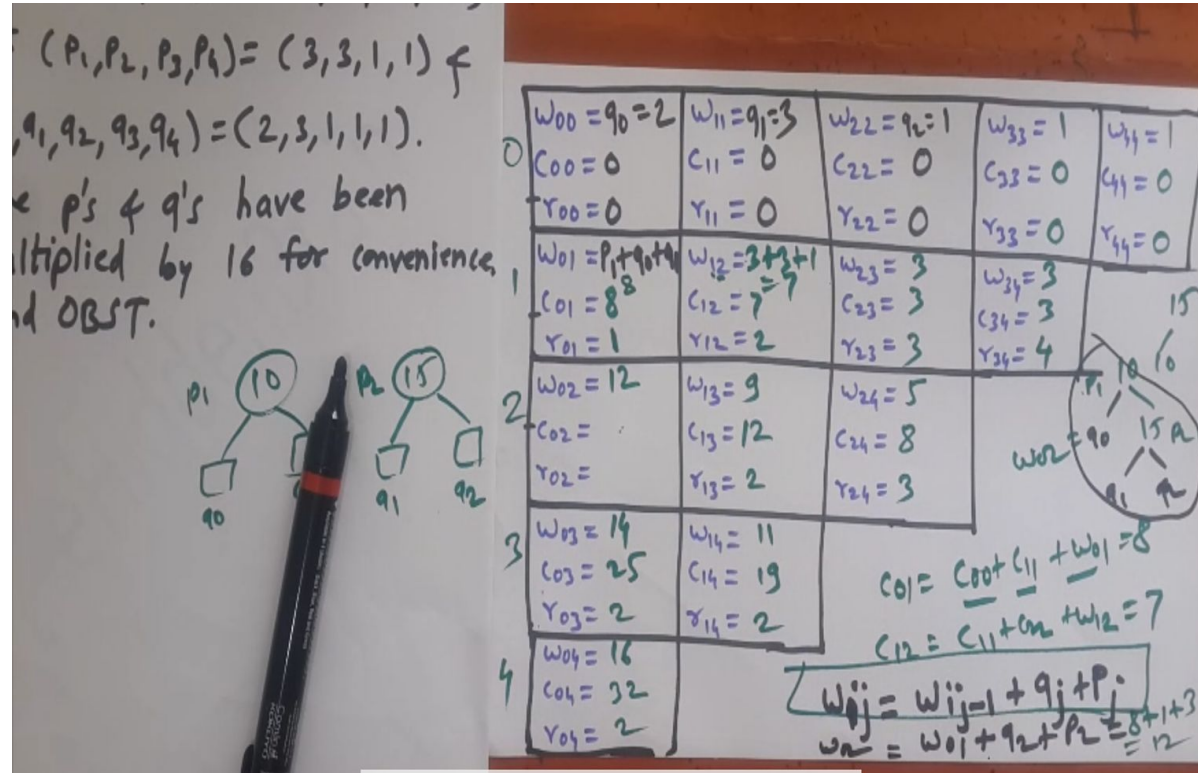 (P1,P2,P3,P4)= (3,3,1,1) &
,q1,q2,q3,q4)=(2,3,1,1,1).
p's & q's have been
ltiplied by 16 for convenience
nd OBST.
P1 10
P2 15
q0
q1 q2
0
W00 = q0 = 2
C00 = 0
r00 = 0
W11 = q1 = 3
C11 = 0
r11 = 0
W22 = q2 = 1
C22 = 0
r22 = 0
W33 = 1
C33 = 0
r33 = 0
W44 = 1
C44 = 0
r44 = 0
1
W01 = P1+q0+q1
8
C01 = 8
r01 = 1
W12 = 3+3+1
= 7
C12 = 7
r12 = 2
W23 = 3
C23 = 3
r23 = 3
W34 = 3
C34 = 3
r34 = 4
2
W02 = 12
C02 =
r02 =
W13 = 9
C13 = 12
r13 = 2
W24 = 5
C24 = 8
r24 = 3
3
W03 = 14
C03 = 25
r03 = 2
W14 = 11
C14 = 19
r14 = 2
4
W04 = 16
C04 = 32
r04 = 2
15
10
P1 10
W02 = q0 15 P2
q1 q2
C01 = C00 + C11 + W01 = 8
C12 = C11 + C22 + W12 = 7
Wij = Wij-1 + qj + Pj
W02 = W01 + q2 + P2 = 8+1+3
= 12